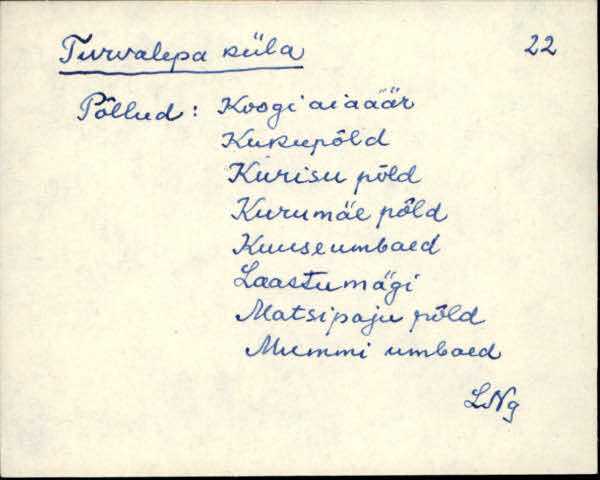 Turvalepa küla 22
Põllud: Koogi aiaäär
Kukupõld
Kurisu põld
Kurumäe põld
Kuuseumbaed
Laastumägi
Matsipaju põld
Mummi umbaed
LNg